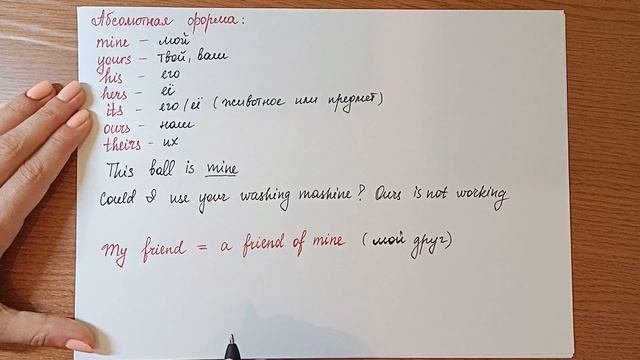 Абсолютная форма:
mine – мой
yours – твой, ваш
his – его
hers – её
its – его/её (животное или предмет)
ours – наш
theirs – их
This ball is mine
Could I use your washing mashine? Ours is not working
My friend = a friend of mine (мой друг)